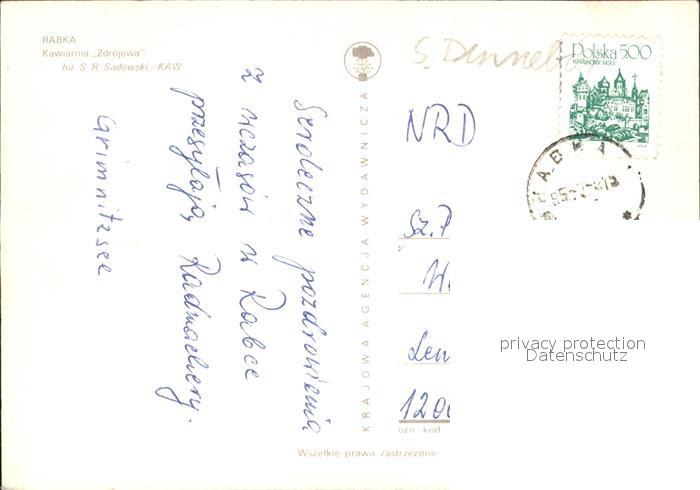 RABKA
Kawiarnia „Zdrojowa"
fot. S. R. Sadowski – KAW
Serdeczne pozdrowienia
z wczasów w Rabce
przesyłają, Radmachery.
Grimnitzsee
KRAJOWA AGENCJA WYDAWNICZA
S.
Polska 500
KRAKÓW 1493
RABKA
NRD
Sz. P
Len
1200
ozn. kod
Wszelkie prawa zastrzeżone
privacy protection
Datenschutz